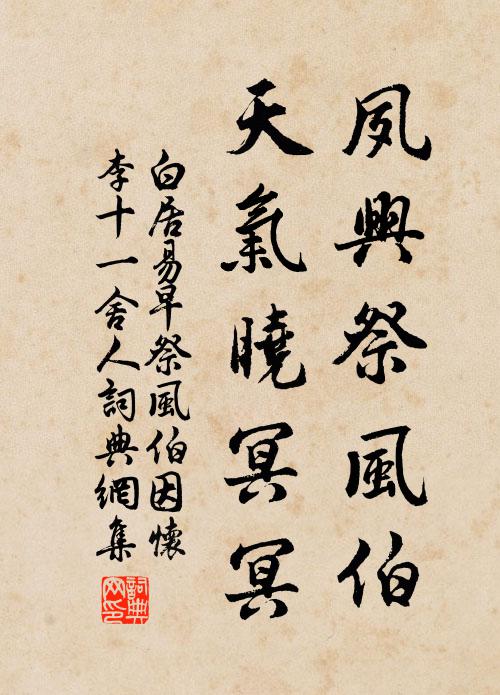 夙興祭風伯
天氣曉冥冥
白居易早祭風伯因懷
李十一舍人詞典網集